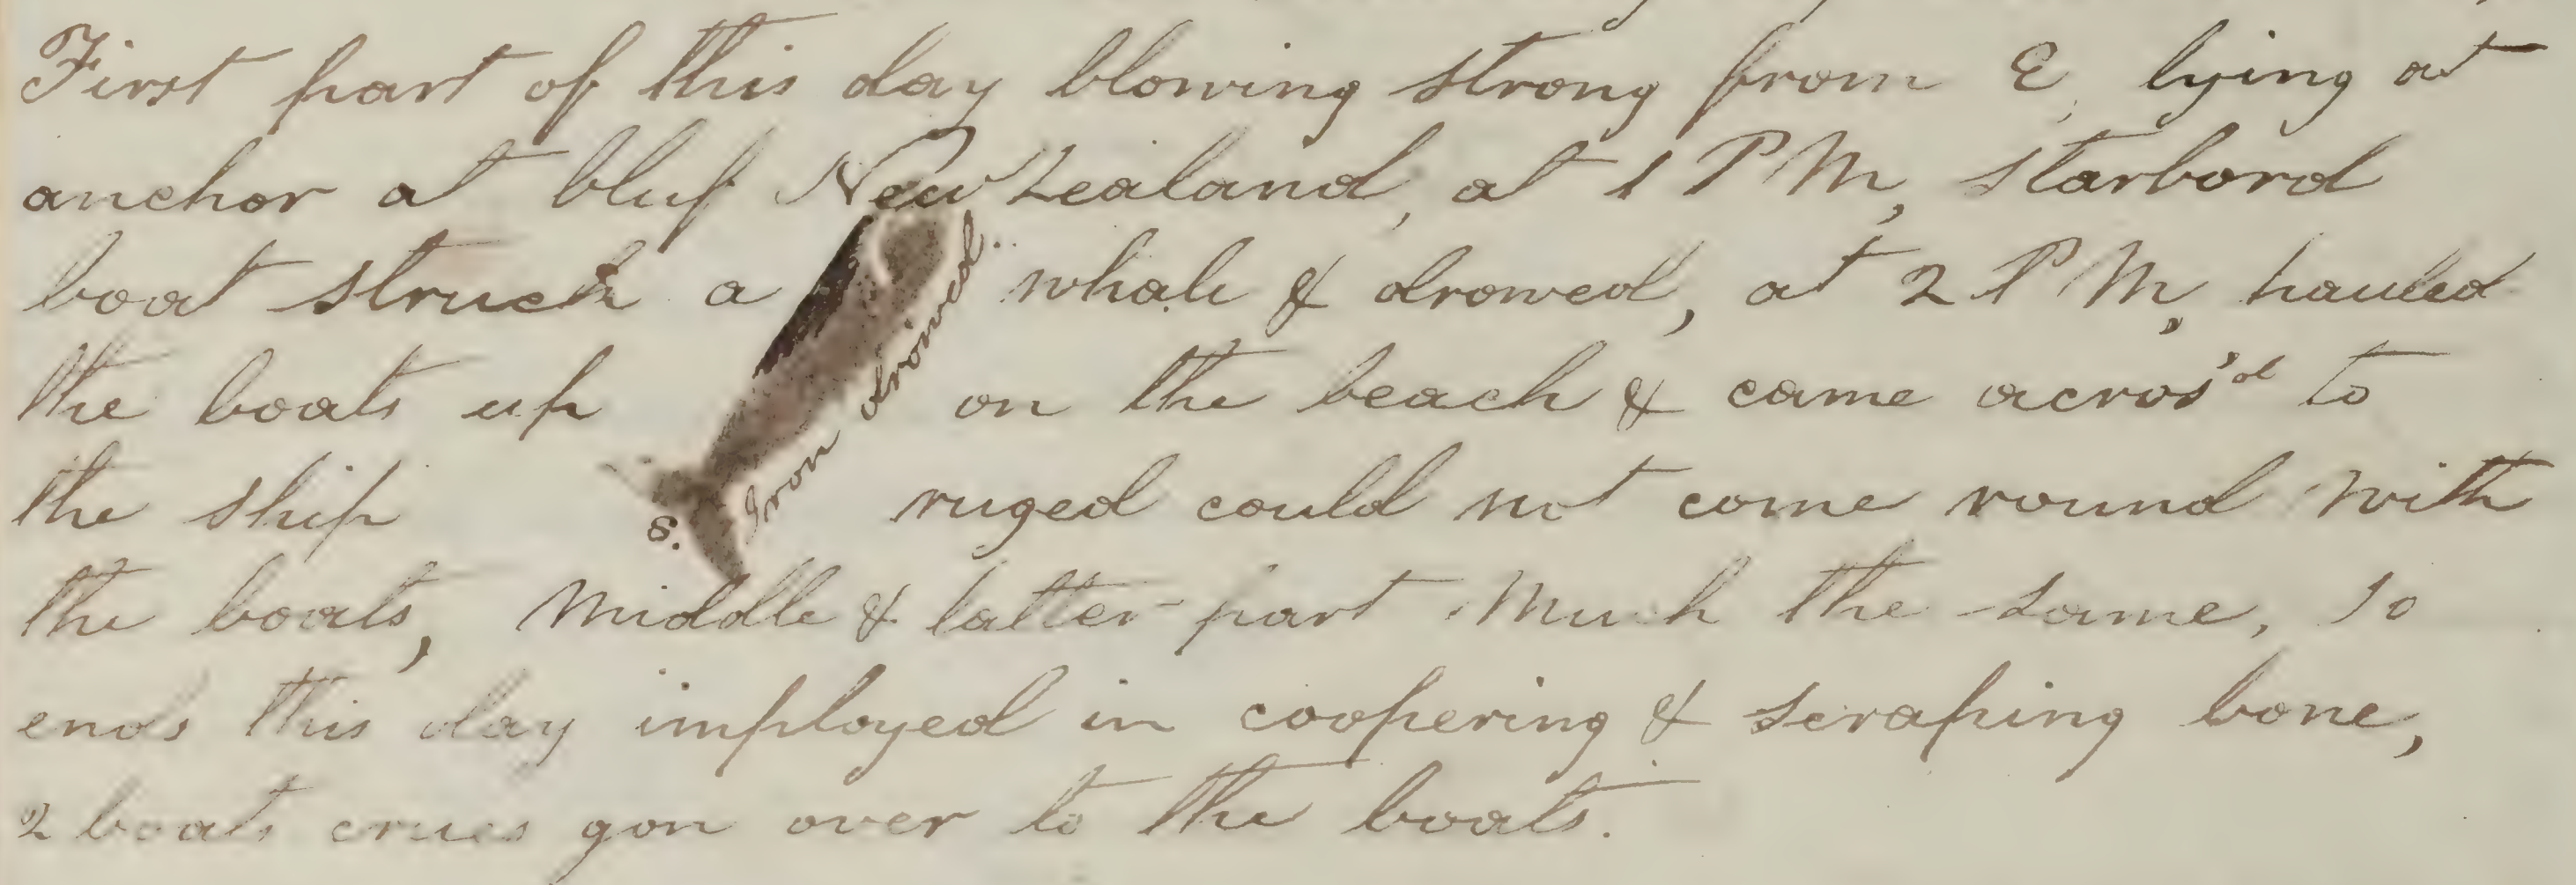 First part of this day blowing strong from E, lying at
anchor at bluf New Zealand, at 1 PM, starbord
boat struck a whale & drowed, at 2 PM, hauled
the boats up on the beach & came acros'd to
the ship ruged could not come round with
the boats, Middle & latter part Much the same, so
ends this day imployed in coopering & scraping bone,
2 boats crues gon over to the boats.
S.
Iron drowed.